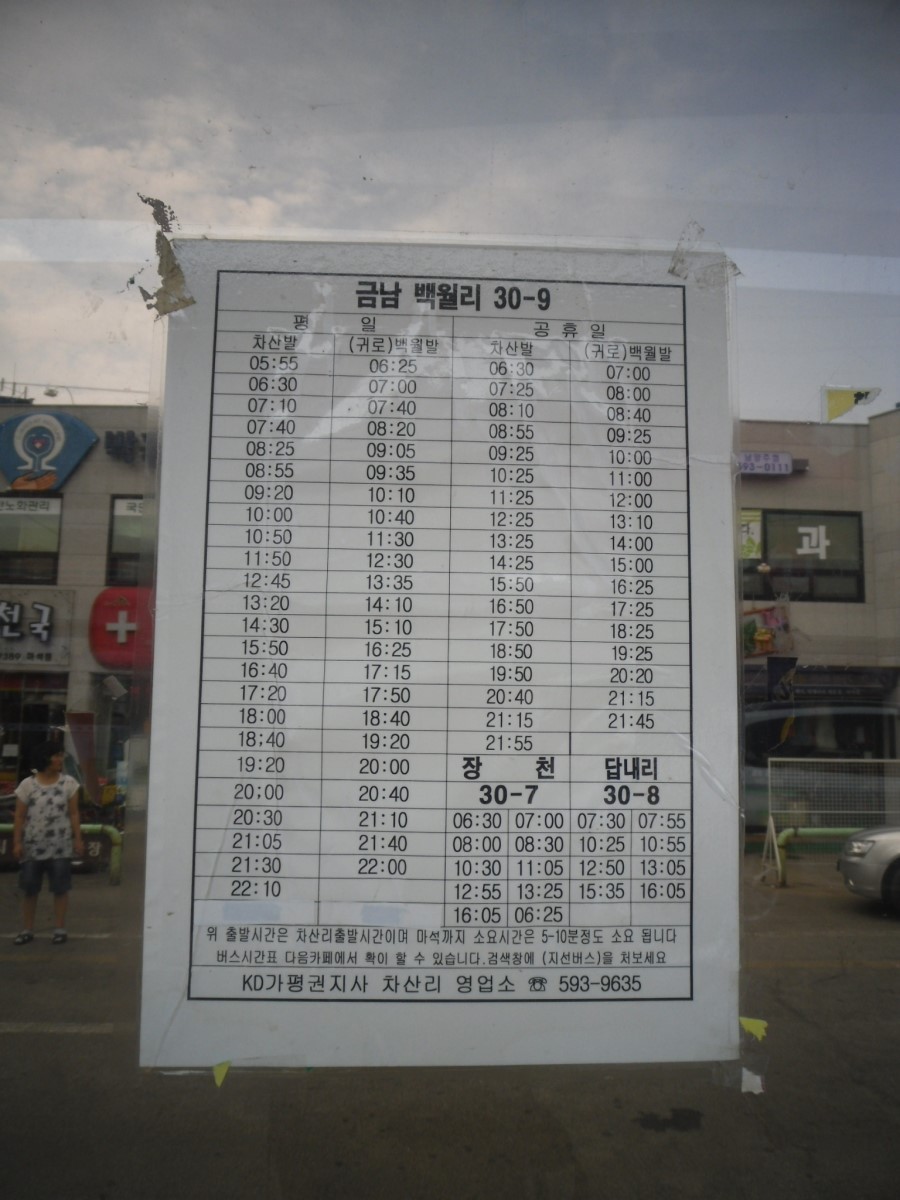 금남 백월리 30-9
평 일 공 휴 일
차산발 (귀로)백월발 차산발 (귀로)백월발
05:55 06:25 06:30 07:00
06:30 07:00 07:25 08:00
07:10 07:40 08:10 08:40
07:40 08:20 08:55 09:25
08:25 09:05 09:25 10:00
08:55 09:35 10:25 11:00
09:20 10:10 11:25 12:00
10:00 10:40 12:25 13:10
10:50 11:30 13:25 14:00
11:50 12:30 14:25 15:00
12:45 13:35 15:50 16:25
13:20 14:10 16:50 17:25
14:30 15:10 17:50 18:25
15:50 16:25 18:50 19:25
16:40 17:15 19:50 20:20
17:20 17:50 20:40 21:15
18:00 18:40 21:15 21:45
18;40 19:20 21:55
19:20 20:00 장 천 답내리
20;00 20:40 30-7 30-8
20:30 21:10 06:30 07:00 07:30 07:55
21:05 21:40 08:00 08:30 10:25 10:55
21:30 22:00 10:30 11:05 12:50 13:05
22:10 12:55 13:25 15:35 16:05
16:05 06:25
위 출발시간은 차산리출발시간이며 마석까지 소요시간은 5-10분정도 소요 됩니다
버스시간표 다음카페에서 확이 할 수 있습니다.검색창에 (지선버스)을 처보세요
KD가평권지사 차산리 영업소 ☏ 593-9635
과
천국